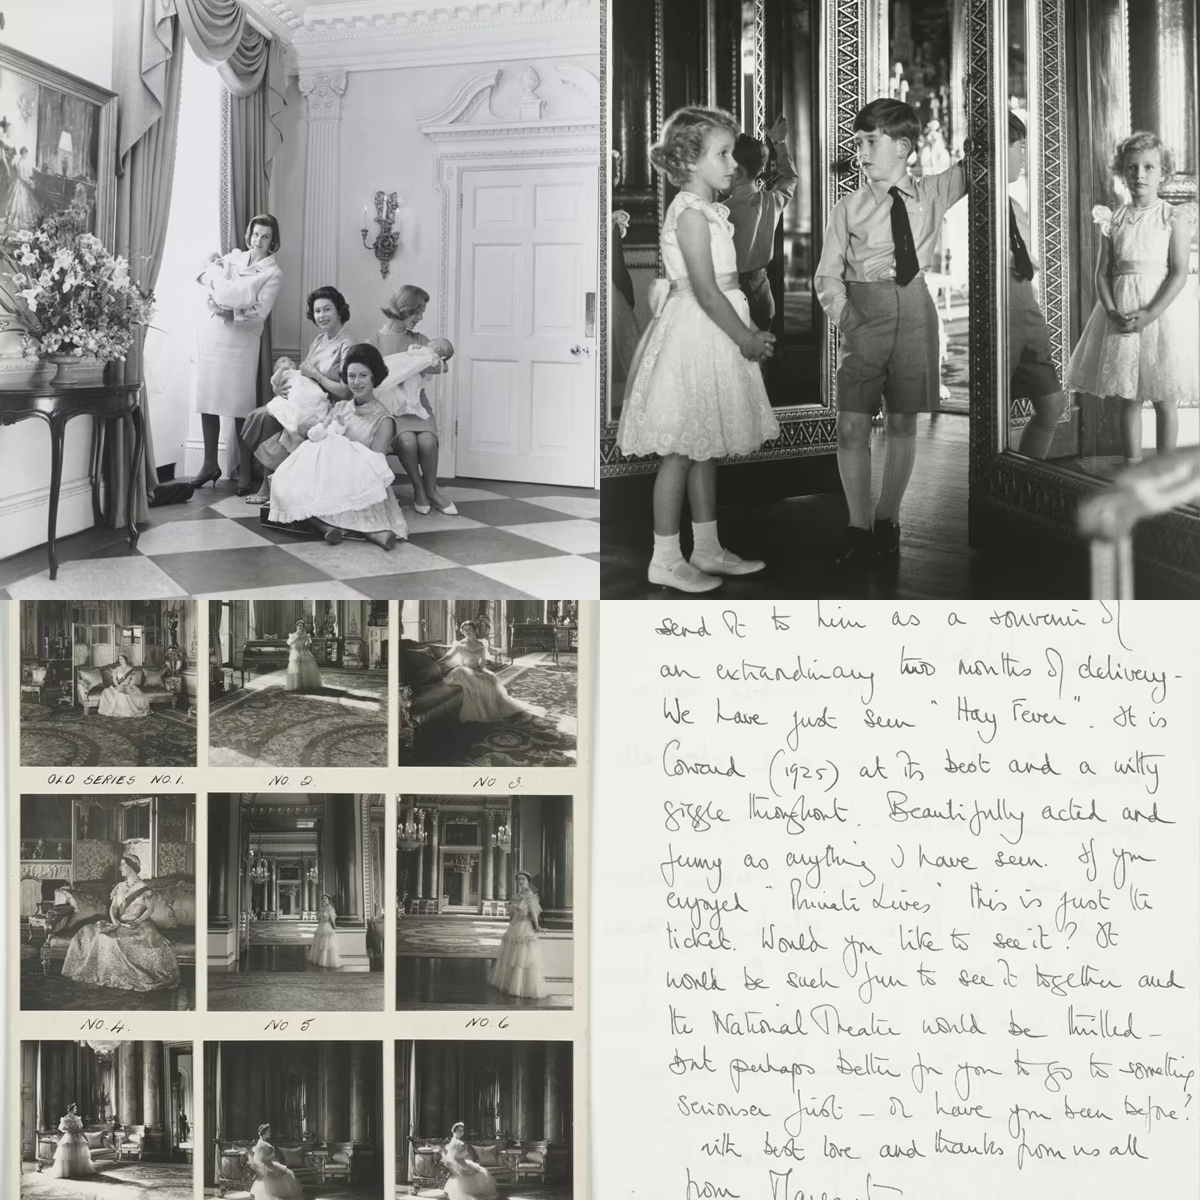 OLD SERIES NO.1.
NO. 2.
NO 3.
NO.4.
NO 5
NO.6
send it to him as a souvenir of
an extraordinary two months of delivery -
We have just seen "Hay Fever". It is
Coward (1925) at its best and a witty
giggle throughout. Beautifully acted and
funny as anything I have seen. If you
enjoyed "Private Lives" this is just the
ticket. Would you like to see it? It
would be such fun to see it together and
the National Theatre would be thrilled -
but perhaps better for you to go to something
seriouser first - or have you been before?
with best love and thanks from us all
from Margaret